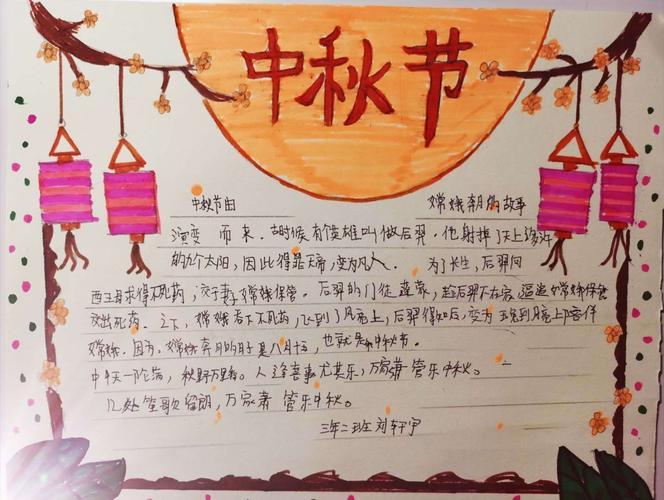 中秋节
中秋节由 嫦娥奔月的故事
演变 而来．古时候有个英雄叫做后羿．他射掉了天上
的九个太阳，因此得罪天帝，变为凡人． 为了长生，后羿向
西王母求得不死药，交于妻子嫦娥保管。后羿的门徒蓬蒙，趁后羿不在家，逼迫嫦娥
交出死药．之下，嫦娥吞下不死药，飞到了月亮上，后羿得知后，变为玉兔到月亮上陪伴
嫦娥．因为，嫦娥奔月的日子是八月十五，也就
中天一，秋野万里．人逢喜事尤其乐，万家萧 管乐中秋。
几处笙歌留朗，万家萧 管乐中秋。
三年二班刘轩宇